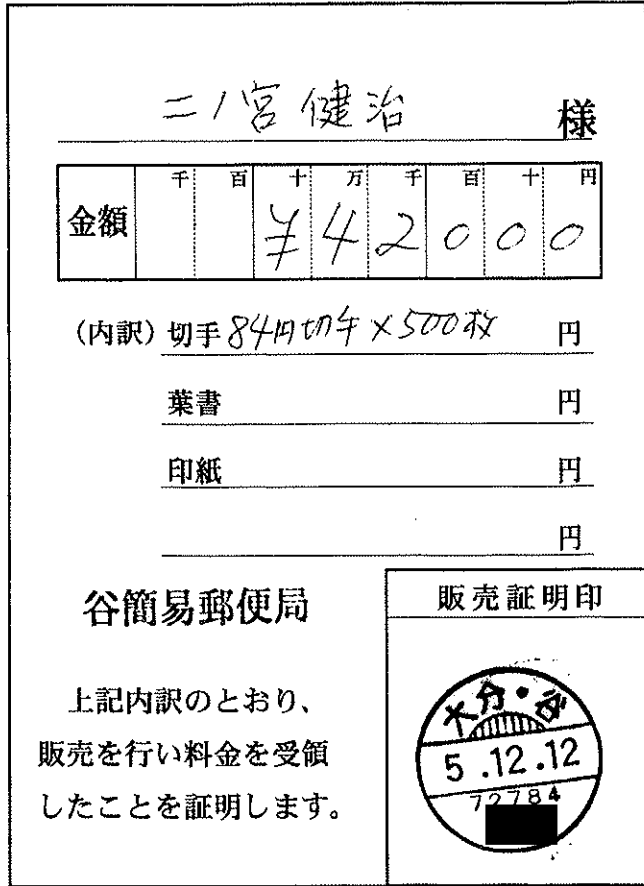 二ノ宮健治 様
千 百 十 万 千 百 十 円
金額 ¥42000
(内訳) 切手 84円切手×500枚 円
葉書 円
印紙 円
円
谷簡易郵便局
上記内訳のとおり、
販売を行い料金を受領
したことを証明します。
販売証明印
大分・谷
5.12.12
72784